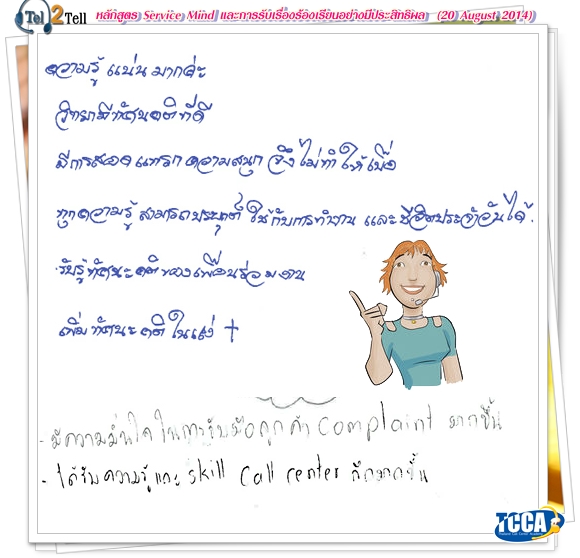 Tel 2 Tell หลักสูตร Service Mind และการรับเรื่องร้องเรียนอย่างมีประสิทธิผล (20 August 2014)
ความรู้ แน่น มากค่ะ
วิทยามีทัศนคติที่ดี
มีการสอดแทรกความสนุก จึงไม่ทำให้เบื่อ
ทุกความรู้ สามารถประยุกต์ ใช้กับการทำงาน และชีวิตประจำวันได้.
รับรู้ทัศนะคติของเพื่อนร่วมงาน
เพิ่มทัศนะคติในแง่ +
- มีความมั่นใจในการรับมือลูกค้า complaint มากขึ้น
- ได้รับความรู้และ skill call center อีกมากขึ้น
TCCA